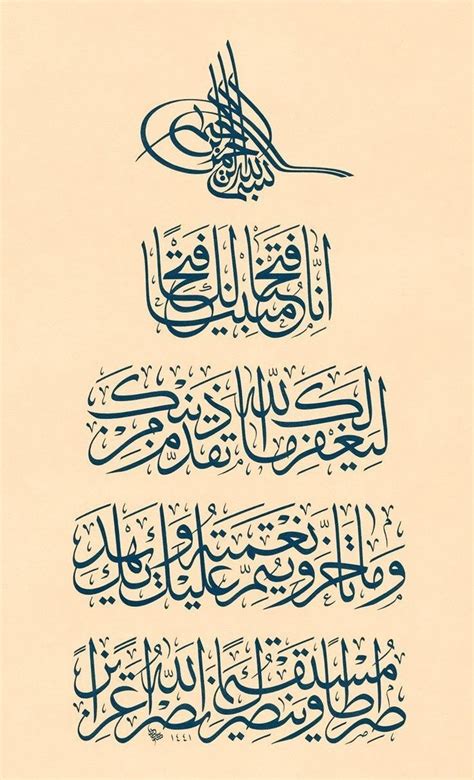 بسم الله الرحمن الرحيم
إنا فتحنا لك فتحا مبينا
ليغفر لك الله ما تقدم من ذنبك
وما تأخر ويتم نعمته عليك ويهديك
صراطا مستقيما وينصرك الله نصرا عزيزا
١٤٤١